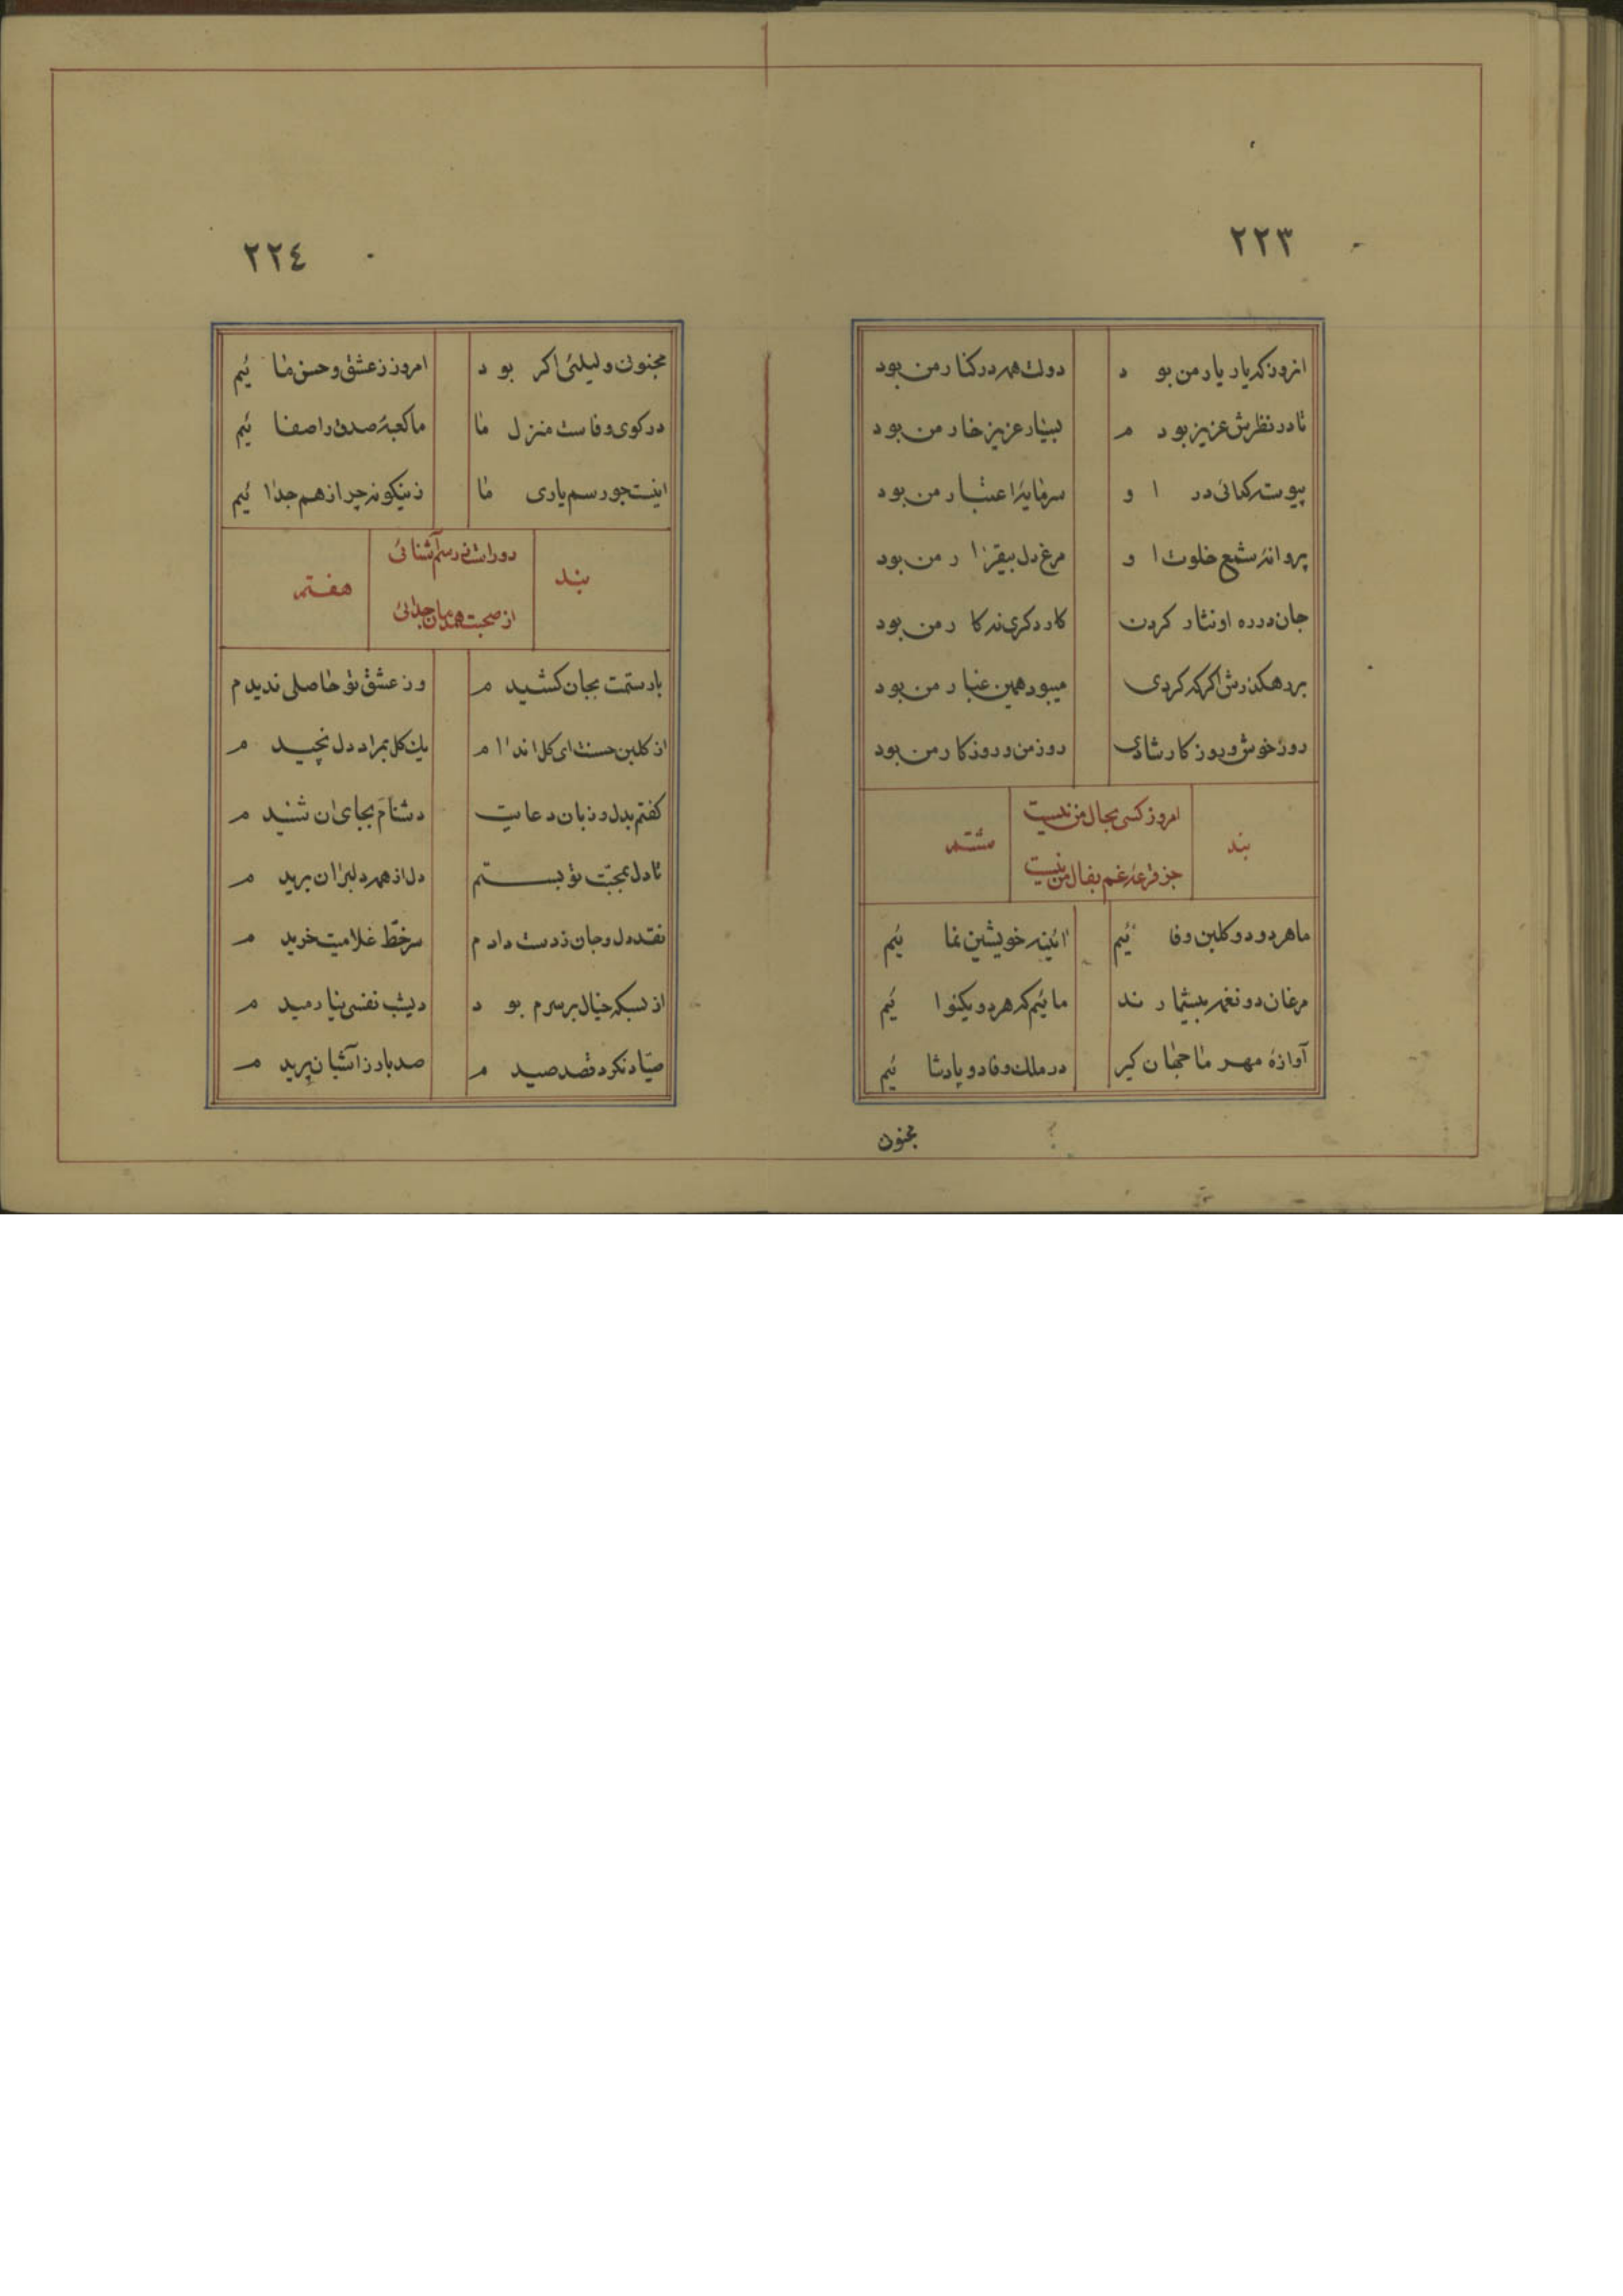 ٢٢٣
انروز که یار یار من بود	دولت همه در کنار من بود
تا در نظرش عزیز بودم	بسیار عزیز خار من بود
پیوسته کدائی در او	سرمایهٔ اعتبار من بود
پروانهٔ شمع خلوت او	مرغ دل بیقرار من بود
جان در ره او نثار کردن	کار دکری نه کار من بود
بر رهکذرش اکر که کردی	میبود همین غبار من بود
روز خوش و روزکار شادی	روز من و روزکار من بود
بند	امروز کسی بحال من نیست	ششم
جز قرعهٔ غم بفال من نیست
ما هر دو دو کلبن وفائیم	ائینه خویشین نمائیم
مرغان دو نغمه بیشمارند	مائیم که هر دو یکنوائیم
آوازهٔ مهر ما جهان کیر	در ملک وفا دو پادشائیم
مجنون
٢٢٤
مجنون و لیلئی اکر بود	امروز ز عشق و حسن مائیم
در کوی وفاست منزل ما	ما کعبهٔ صدق را صفائیم
اینست چو رسم یاری ما	زینکونه چرا ز هم جدائیم
بند	دور است ز رسم آشنائی	هفتم
از صحبت همدمان جدائی
بار ستمت بجان کشیدم	وز عشق تو حاصلی ندیدم
از کلبن حسنت ای کل اندام	یک کل بمراد دل نچیدم
کفتم بدل و زبان دعایت	دشنام بجای ان شنیدم
تا دل بمحبت تو بستم	دل از همه دلبران بریدم
نقد دل و جان ز دست دادم	سرخط غلامیت خریدم
از بسکه خیال بر سرم بود	دیشب نفسی نیارمیدم
صیاد نکرد قصد صیدم	صد بار ز آشیان پریدم